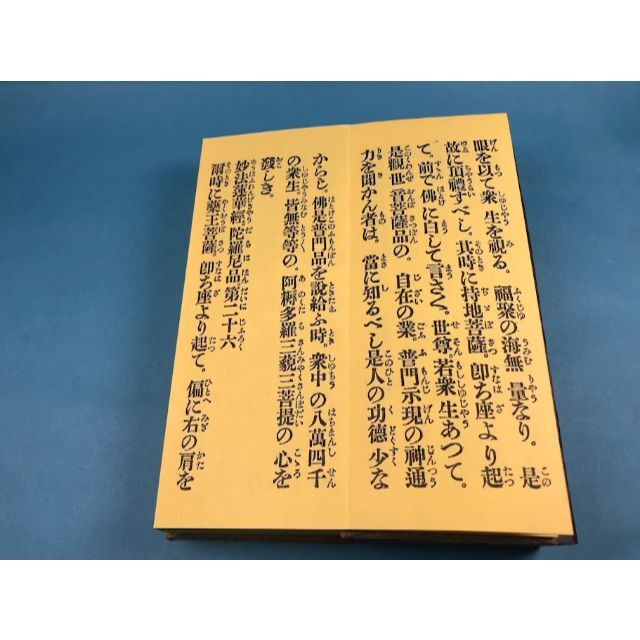 眼を以て衆生を視る。福聚の海無量なり。是
故に頂禮すべし、其時に持地菩薩。卽ち座より起
て。前で佛に白して言さく。世尊。若衆生あつて。
是觀世音菩薩品の。自在の業。普門示現の神通
力を聞かん者は。當に知るべし是人の功德少な
からと。佛是普門品を說給ふ時。衆中の八萬四千
の衆生皆無等等の。阿耨多羅三藐三菩提の心を
發しき。
妙法蓮華經陀羅尼品第二十六
爾時に藥王菩薩。卽ち座より起て。偏に右の肩を